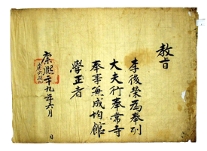 教旨
李後榮為奉列
大夫行奉常寺
奉事兼成均館
學正者
康熙二十九年六月 日